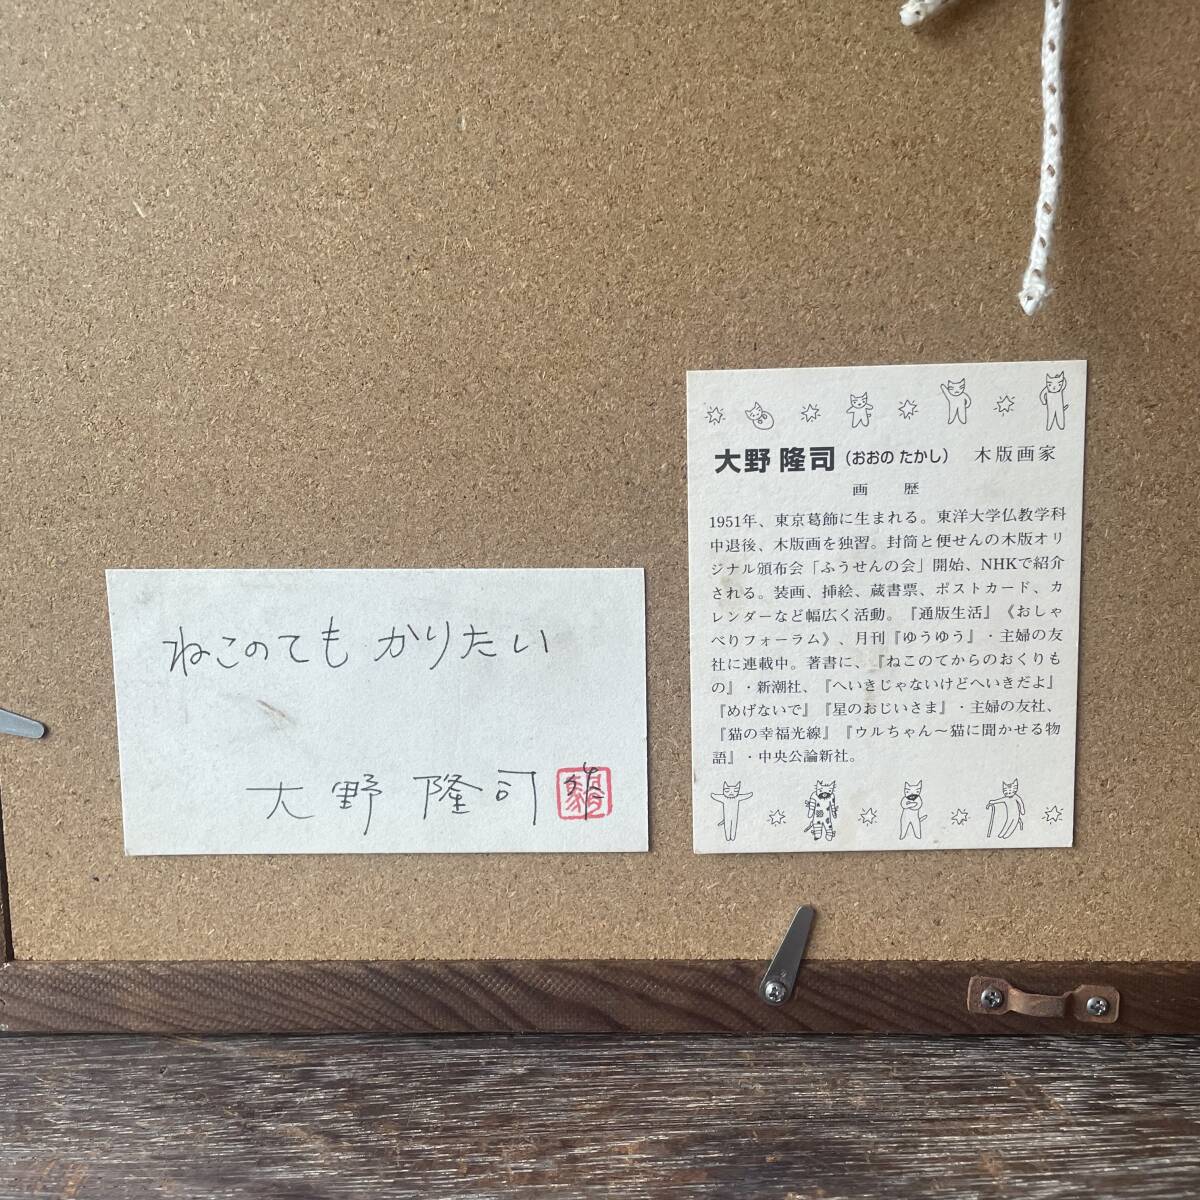 ねこのても かりたい
大野 隆司 作
大野 隆司 (おおの たかし) 木版画家
画 歴
1951年、東京葛飾に生まれる。東洋大学仏教学科
中退後、木版画を独習。封筒と便せんの木版オリ
ジナル頒布会「ふうせんの会」開始、NHKで紹介
される。装画、挿絵、蔵書票、ポストカード、カ
レンダーなど幅広く活動。『通販生活』《おしゃ
べりフォーラム》、月刊『ゆうゆう』・主婦の友
社に連載中。著書に、『ねこのてからのおくりも
の』・新潮社、『へいきじゃないけどへいきだよ』
『めげないで』『星のおじいさま』・主婦の友社、
『猫の幸福光線』『ウルちゃん〜猫に聞かせる物
語』・中央公論新社。